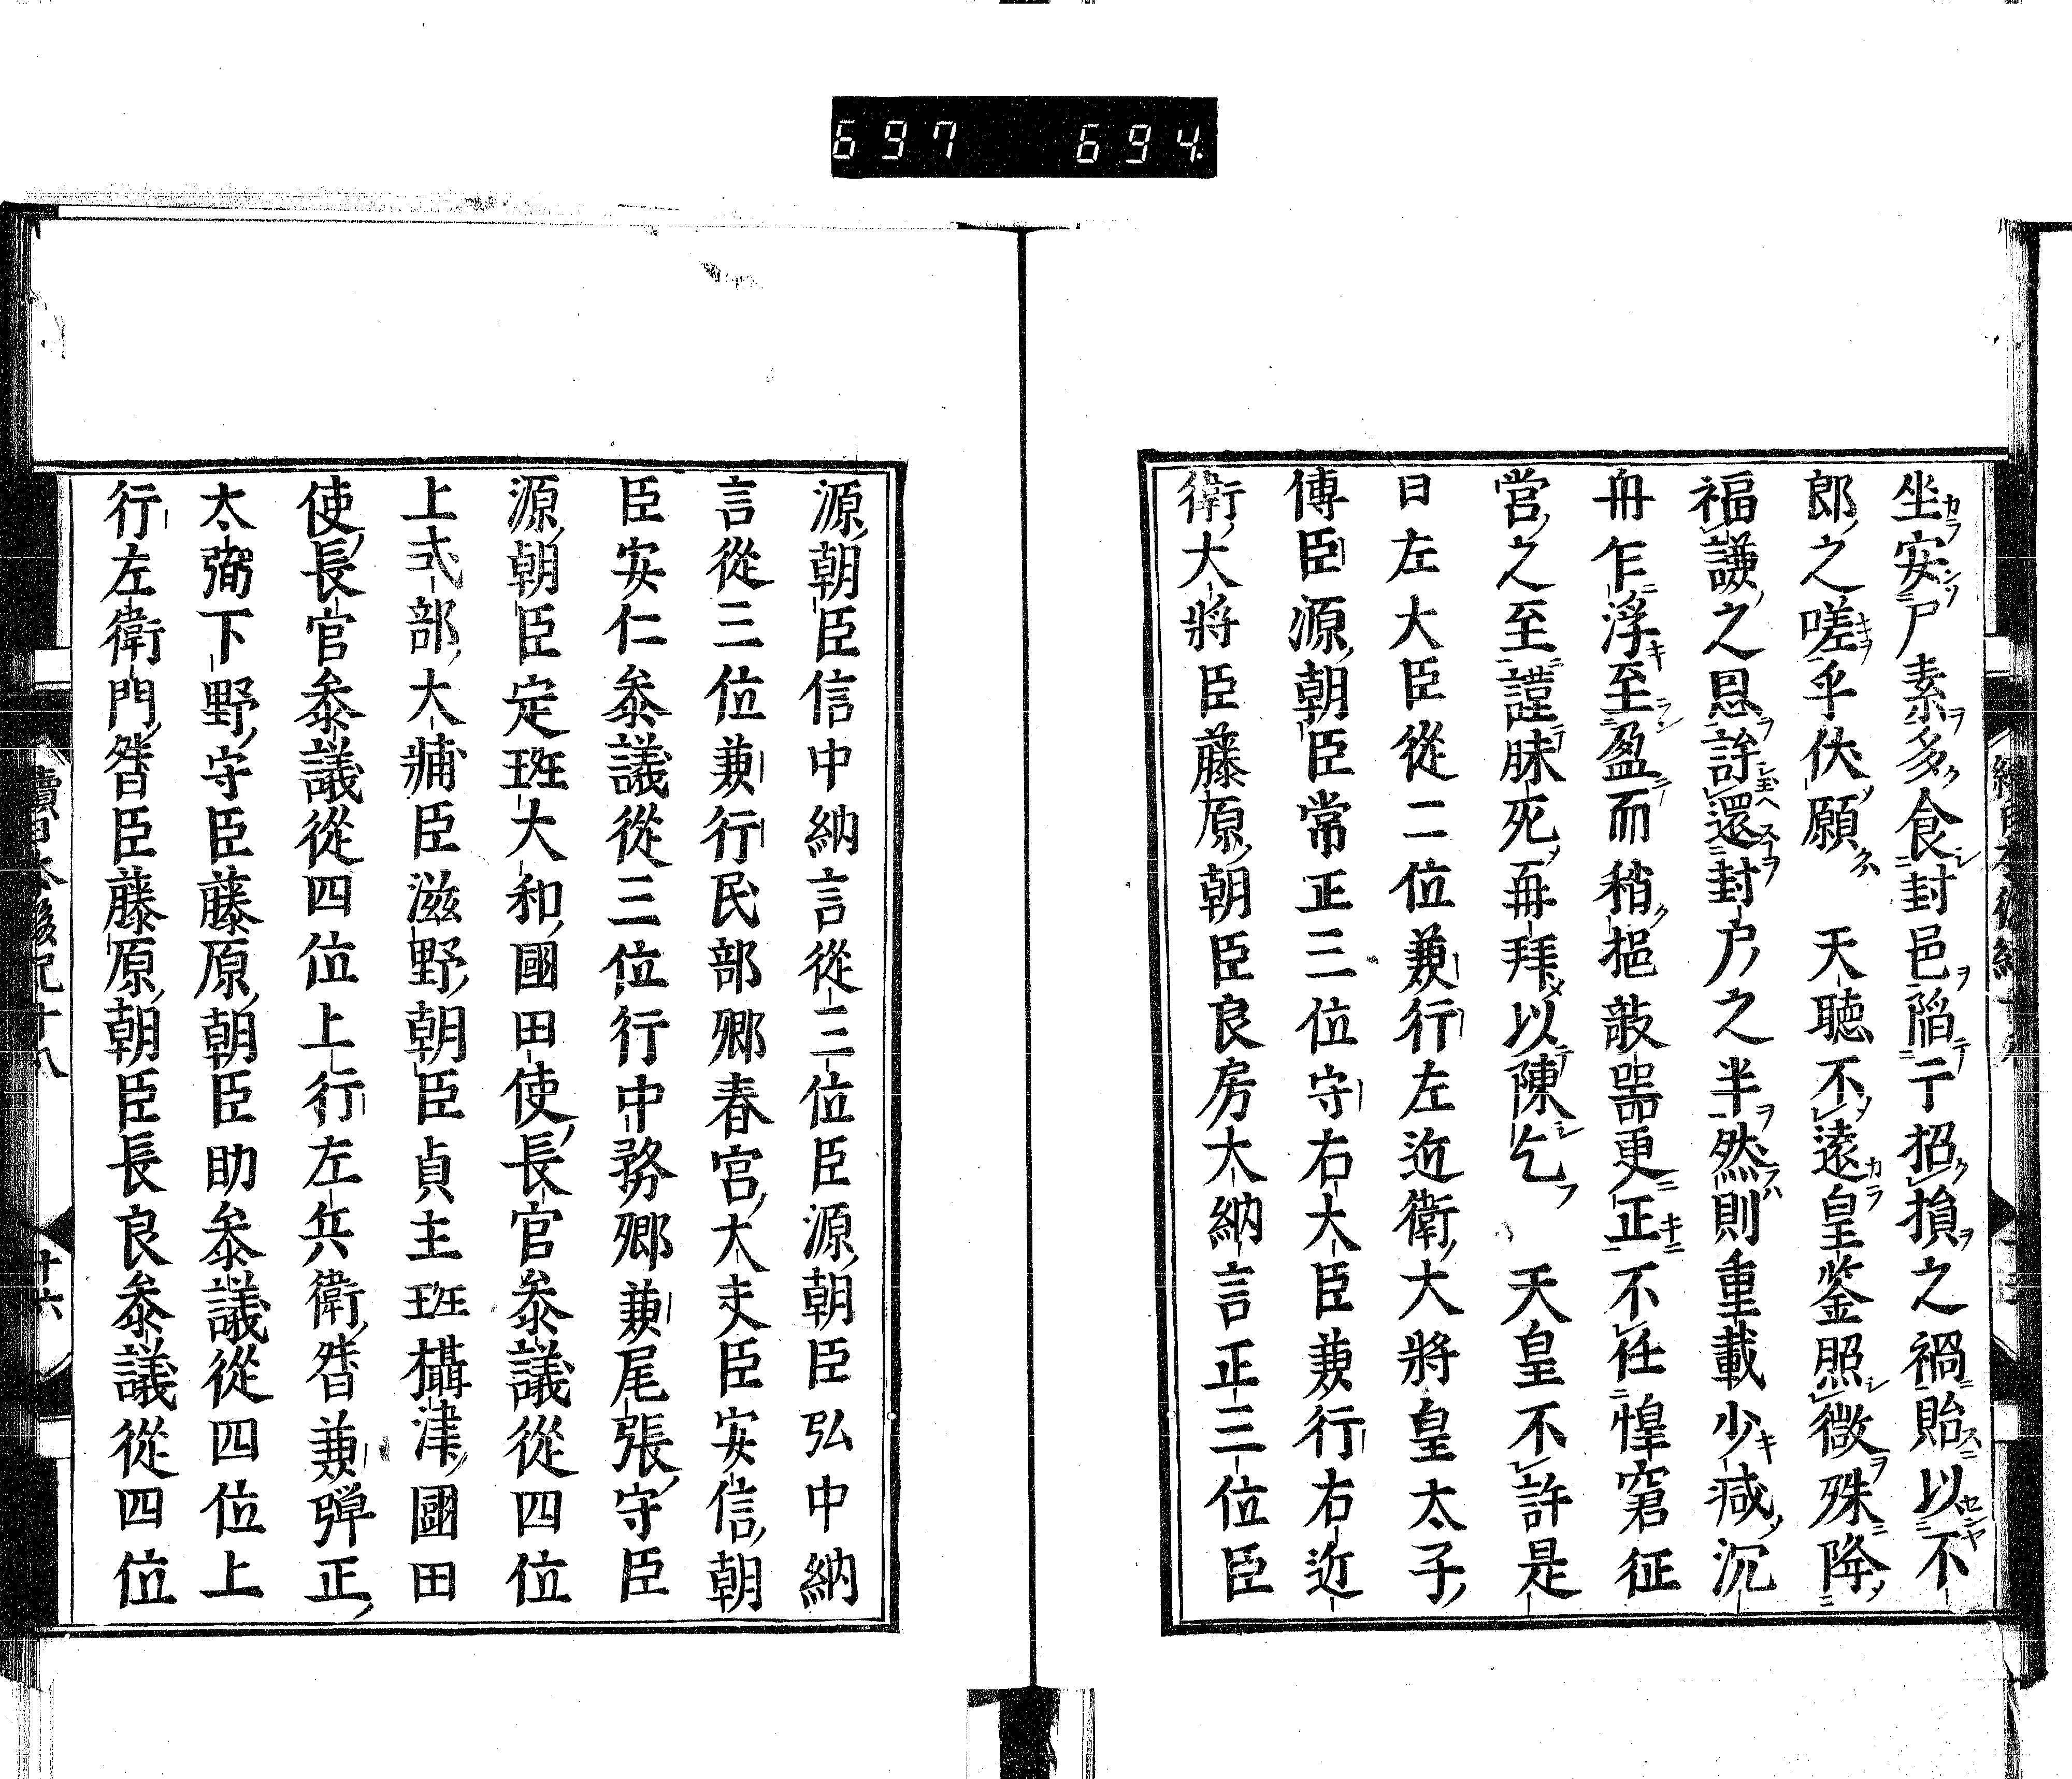 697 694
坐安尸素多食封邑陷亍招損之禍貽以不
郎之嗟乎伏願 天聴不遠皇鉴照微殊降
福謙之恩許還封户之半然則重載少减沉
舟乍浮至盈而稍挹敧噐更正不任惶窘征
営之至謹昧死再拜以陳乞 天皇不許是
日左大臣從二位兼行左近衛大將皇太子
傅臣源朝臣常正三位守右大臣兼行右近
衛大將臣藤原朝臣良房大納言正三位臣
源朝臣信中納言從三位臣源朝臣弘中納
言從三位兼行民部卿春宮大夫臣安信朝
臣安仁叅議從三位行中務卿兼尾張守臣
源朝臣定班大和國田使長官叅議從四位
上式部大輔臣滋野朝臣貞主班攝津國田
使長官叅議從四位上行左兵衛督兼彈正
大弼下野守臣藤原朝臣助叅議從四位上
行左衛門督臣藤原朝臣長良叅議從四位
續日本後紀十八
十六